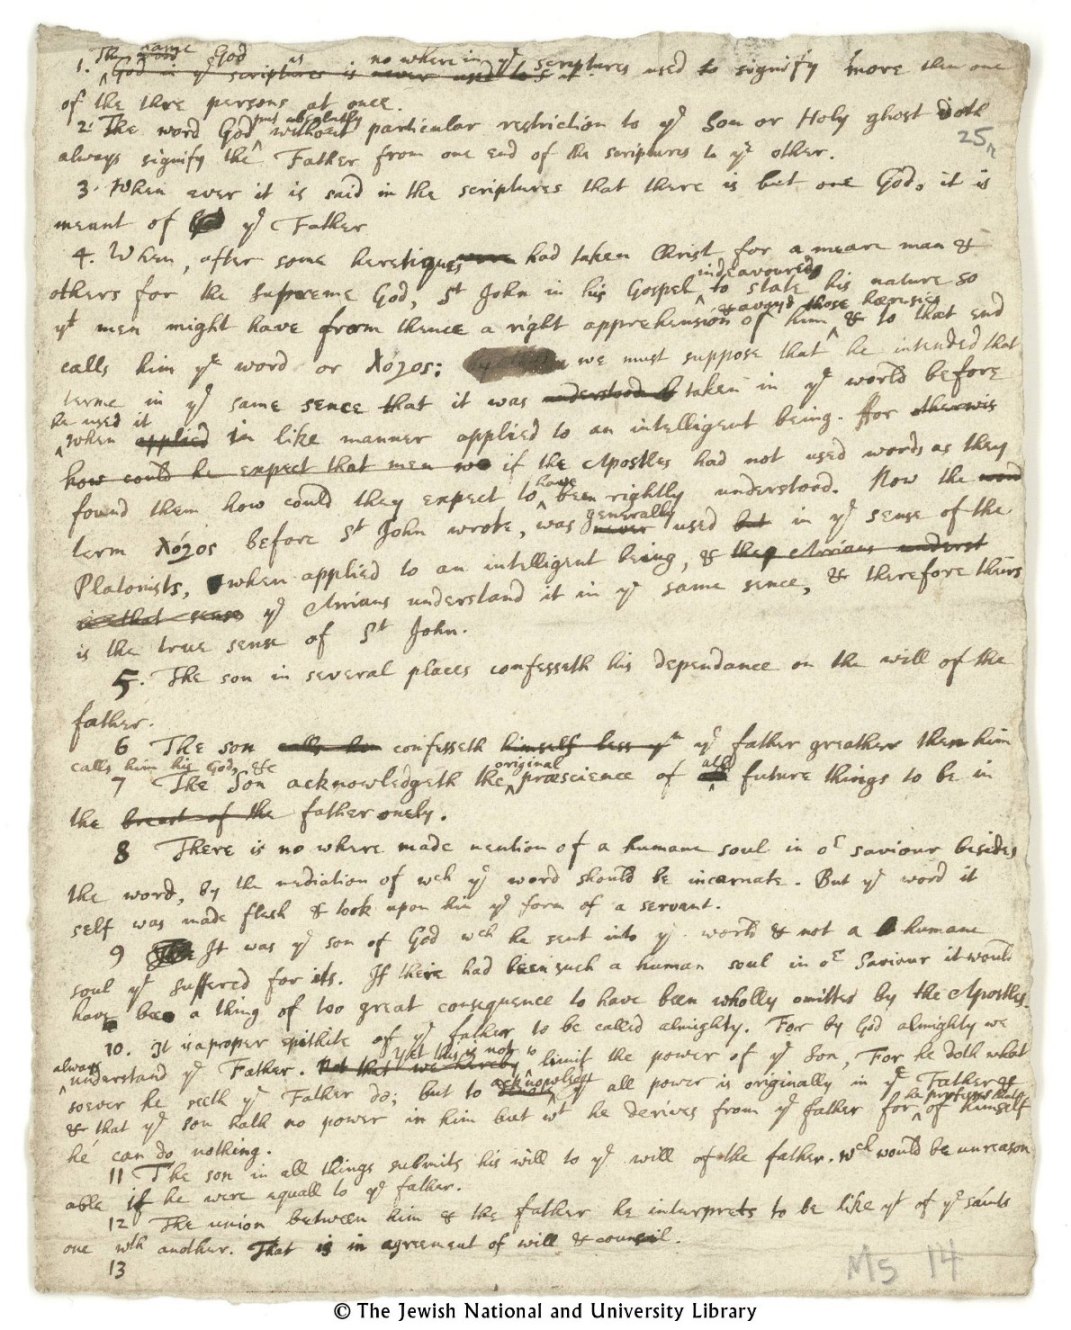 1. The name God in ye scriptures is never used to s God as no where in ye scriptures used to signify more then one
of the thre persons at once.
2. The word God put absolutly without particular restriction to ye Son or Holy ghost doth
25r
always signify the Father from one end of the scriptures to ye other.
3. When ever it is said in the scriptures that there is but one God, it is
meant of ye Father
4. When, after some heretiques were had taken Christ for a meare man &
others for the supreme God, St John in his Gospel indeavoured to state his nature so
yt men might have from thence a right apprehension of him & avoyd those hæresies & to that end
calls him ye word or λόγος: we must suppose that he intended that
terme in ye same sence that it was understood taken in ye world before
he used it when applied in like manner applied to an intelligent being. ffor otherwis
how could he expect that men if the Apostles had not used words as they
found them how could they expect to have been rightly understood. Now the word
term λόγος before St John wrote, was never generally used but in ye sense of the
Platonists, when applied to an intelligent being, & the Arrians underst
in that sense ye Arrians understand it in ye same sence, & therefore theirs
is the true sense of St John.
5. The son in several places confesseth his dependance on the will of the
father.
6 The son calls him confesseth himself less yn ye father greather then him
calls him his God, &c
7 The Son acknowledgeth the original præscience of all future things to be in
the breast of the father onely.
8 There is no where made mention of a humane soul in or saviour besides
the word, by the mediation of wch ye word should be incarnate. But ye word it
self was made flesh & took upon him ye form of a servant.
9 The It was ye son of God wch he sent into ye world & not a humane
soul yt suffered for us. If there had been such a human soul in or Saviour it would
have been a thing of too great consequence to have been wholly omitted by the Apostles.
10. It is a proper epithite of ye father to be called almighty. For by God almighty we
always understand ye Father. Not that we hereby Yet this is not to limit the power of ye Son, For he doth what
soever he seeth ye Father do; but to acknowledg yt all power is originally in ye Father &
& that ye son hath no power in him but wt he derives from ye father for he professes that of himself
he can do nothing.
11 The son in all things submits his will to ye will of the father. wch would be unreason
able if he were equall to ye father.
12 The union between him & the father he interprets to be like yt of ye saints
one wth another. That is in agreement of will & counsil.
13
Ms 14
© The Jewish National and University Library